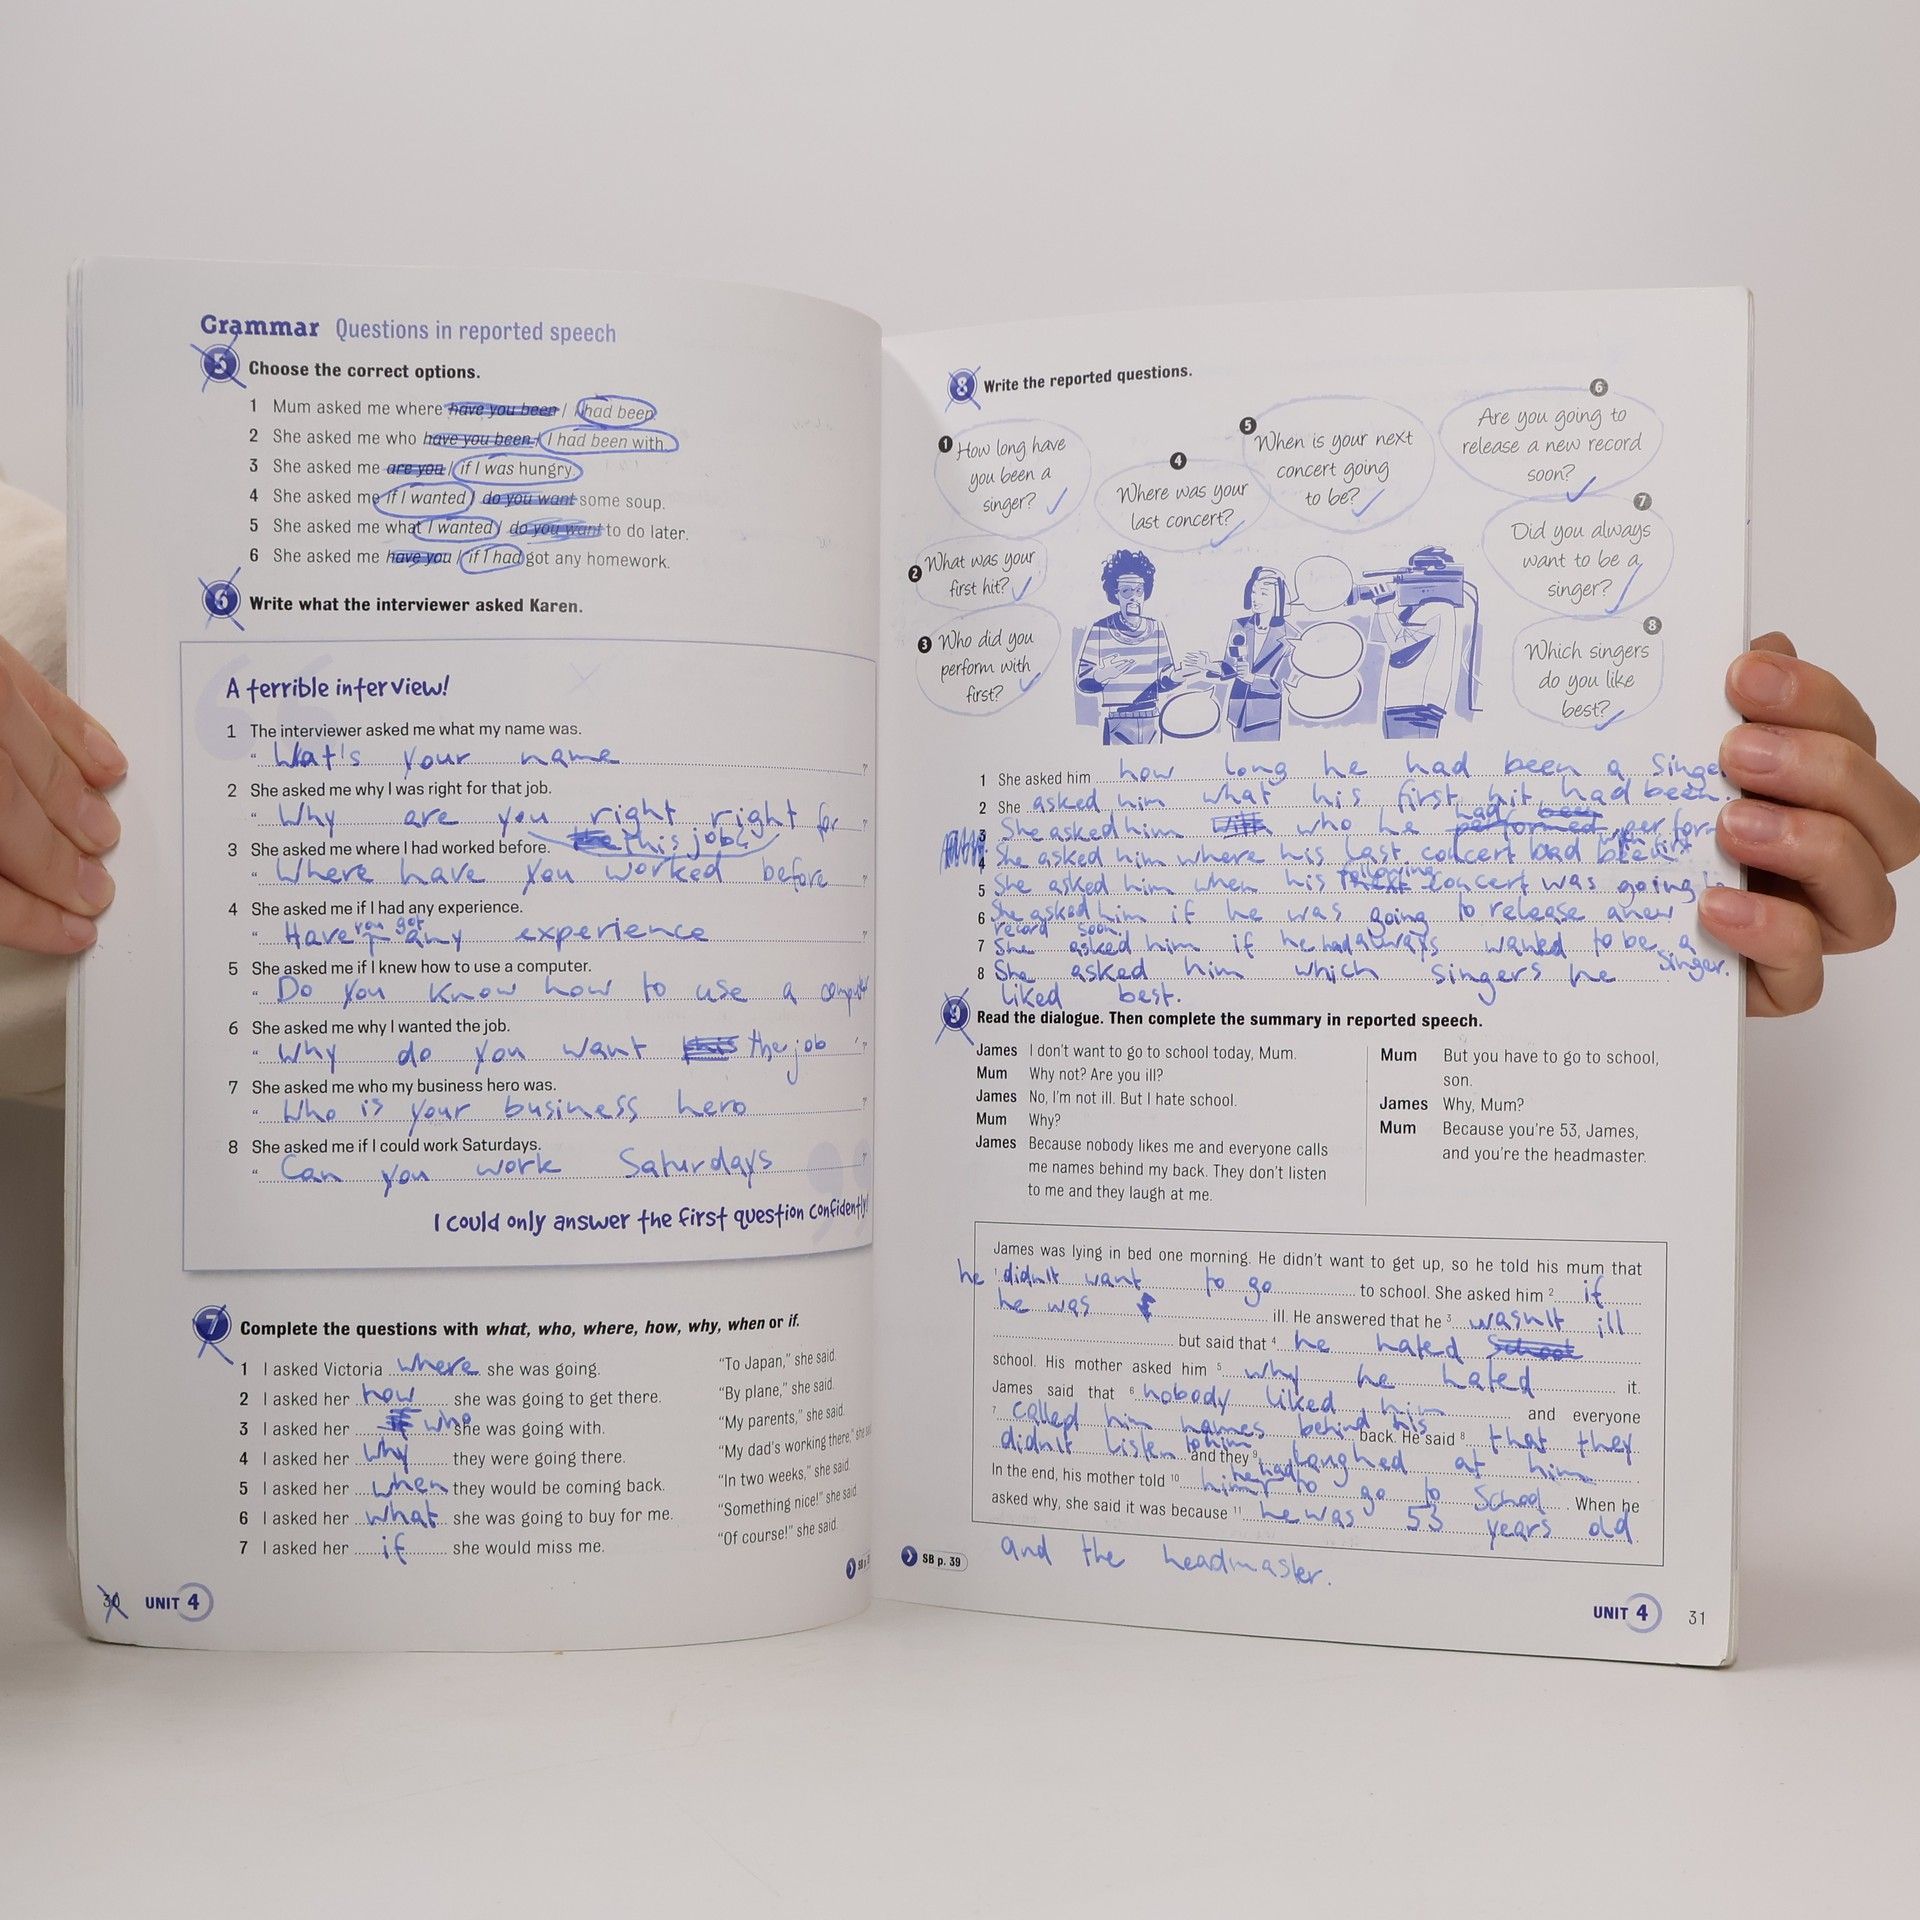 Grammar Questions in reported speech
5 Choose the correct options.
1 Mum asked me where have you been / I had been
2 She asked me who have you been / I had been with.
3 She asked me are you / if I was hungry.
4 She asked me if I wanted / do you want some soup.
5 She asked me what I wanted / do you want to do later.
6 She asked me have you / if I had got any homework.
6 Write what the interviewer asked Karen.
A terrible interview!
1 The interviewer asked me what my name was.
“ Wat's your name ?
2 She asked me why I was right for that job.
“ Why are you right right for ?
this job
3 She asked me where I had worked before.
“ Where have you worked before ?
4 She asked me if I had any experience.
“ Have you got any experience ?
5 She asked me if I knew how to use a computer.
“ Do you know how to use a computer
6 She asked me why I wanted the job.
“ Why do you want this the job ?
7 She asked me who my business hero was.
“ Who is your business hero ?
8 She asked me if I could work Saturdays.
“ Can you work Saturdays ?
I could only answer the first question confidently!
7 Complete the questions with what, who, where, how, why, when or if.
1 I asked Victoria where she was going. “To Japan,” she said.
2 I asked her how she was going to get there. “By plane,” she said.
3 I asked her who she was going with. “My parents,” she said.
4 I asked her why they were going there. “My dad's working there,” she said
5 I asked her when they would be coming back. “In two weeks,” she said.
6 I asked her what she was going to buy for me. “Something nice!” she said.
7 I asked her if she would miss me. “Of course!” she said.
30 UNIT 4
8 Write the reported questions.
1 How long have
you been a
singer?
2 What was your
first hit?
3 Who did you
perform with
first?
4 Where was your
last concert?
5 When is your next
concert going
to be?
6 Are you going to
release a new record
soon?
7 Did you always
want to be a
singer?
8 Which singers
do you like
best?
1 She asked him how long he had been a singe
2 She asked him what his first hit had been.
3 She asked him who he had performed
4 She asked him where his last concert had been
5 She asked him when his following concert was going to
6 She asked him if he was going to release a new
record soon.
7 She asked him if he had always wanted to be a
singer.
8 She asked him which singers he
liked best.
9 Read the dialogue. Then complete the summary in reported speech.
James I don't want to go to school today, Mum.
Mum Why not? Are you ill?
James No, I'm not ill. But I hate school.
Mum Why?
James Because nobody likes me and everyone calls
me names behind my back. They don't listen
to me and they laugh at me.
Mum But you have to go to school,
son.
James Why, Mum?
Mum Because you're 53, James,
and you're the headmaster.
James was lying in bed one morning. He didn't want to get up, so he told his mum that
he 1 didn't want to go to school. She asked him 2 if
he was ill. He answered that he 3 wasn't ill
but said that 4 he hated School
school. His mother asked him 5 why he hated it.
James said that 6 nobody liked him and everyone
7 called him names behind his back. He said 8 that they
didn't listen to him and they 9 laughed at him
In the end, his mother told 10 him he had to go to School. When he
asked why, she said it was because 11 he was 53 years old
and the headmaster.
SB p. 39
UNIT 4 31